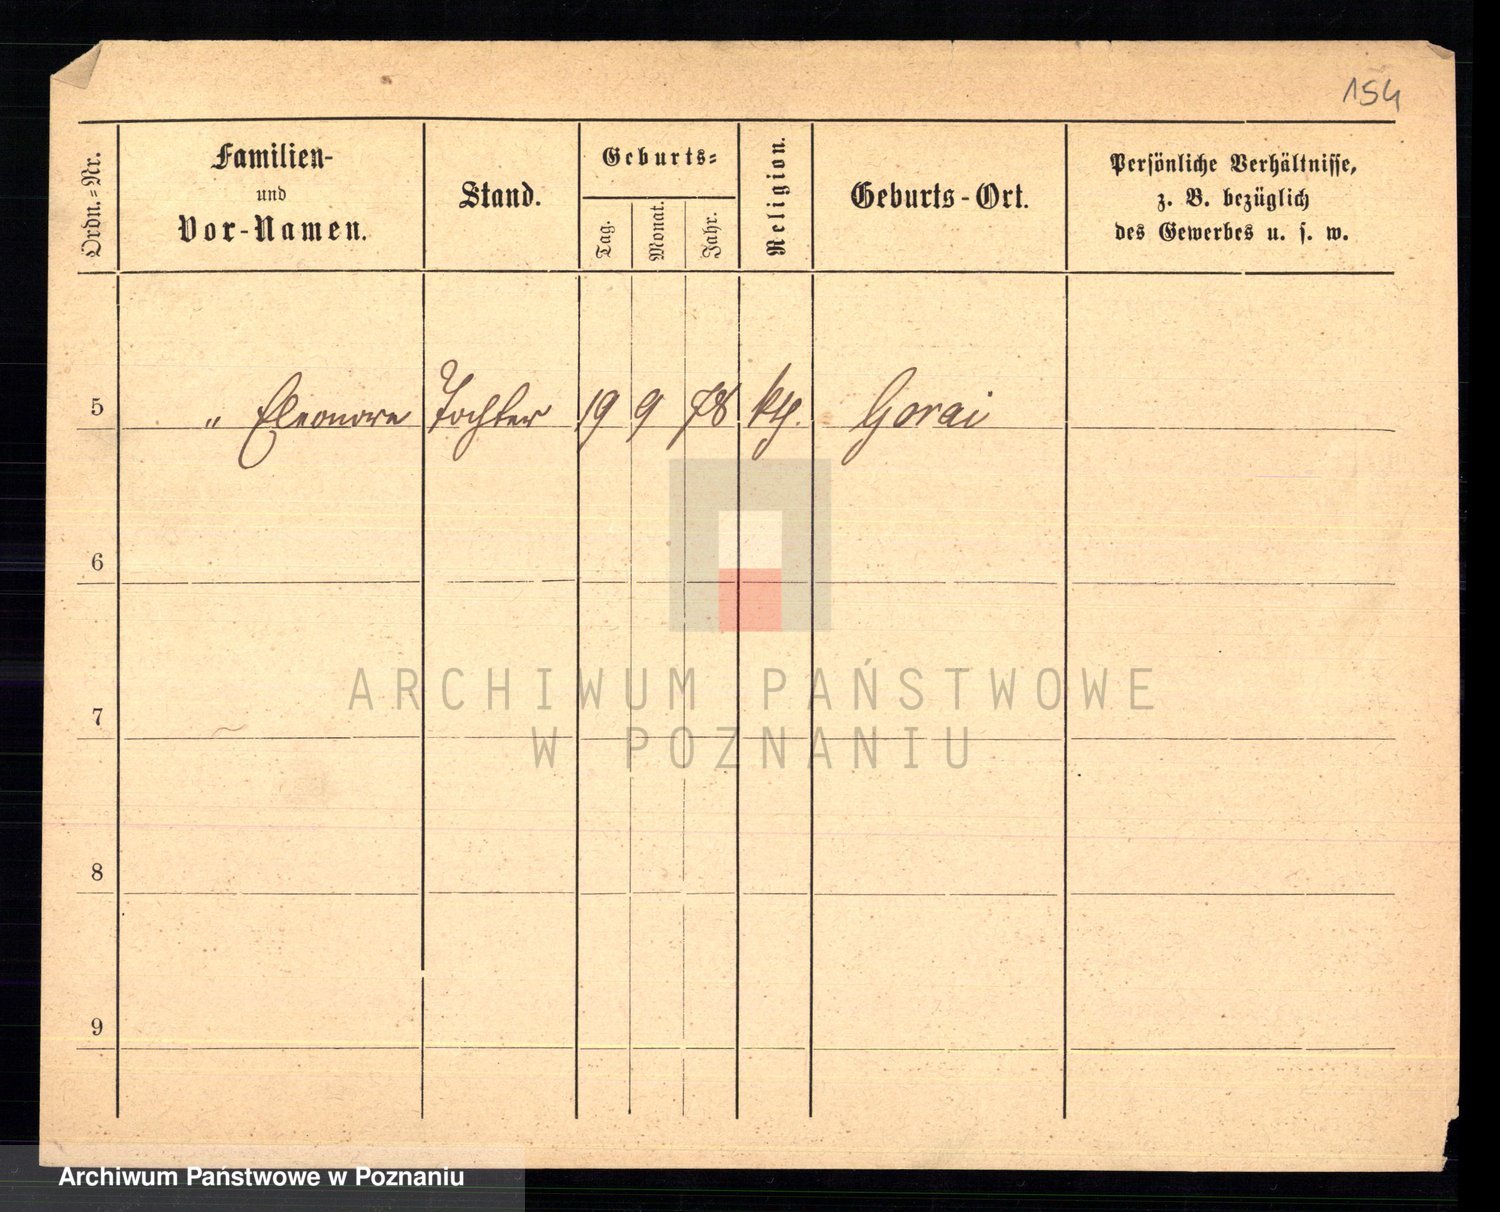 154
Ordn.=Nr.
Familien-
und
Vor-Namen.
Stand.
Geburts=
Tag.
Monat.
Jahr.
Religion.
Geburts-Ort.
Persönliche Verhältnisse,
z. B. bezüglich
des Gewerbes u. s. w.
5 " Eleonore Tochter 19 9 78 kth. Gorai
6
7
8
9
ARCHIWUM PAŃSTWOWE
W POZNANIU
Archiwum Państwowe w Poznaniu